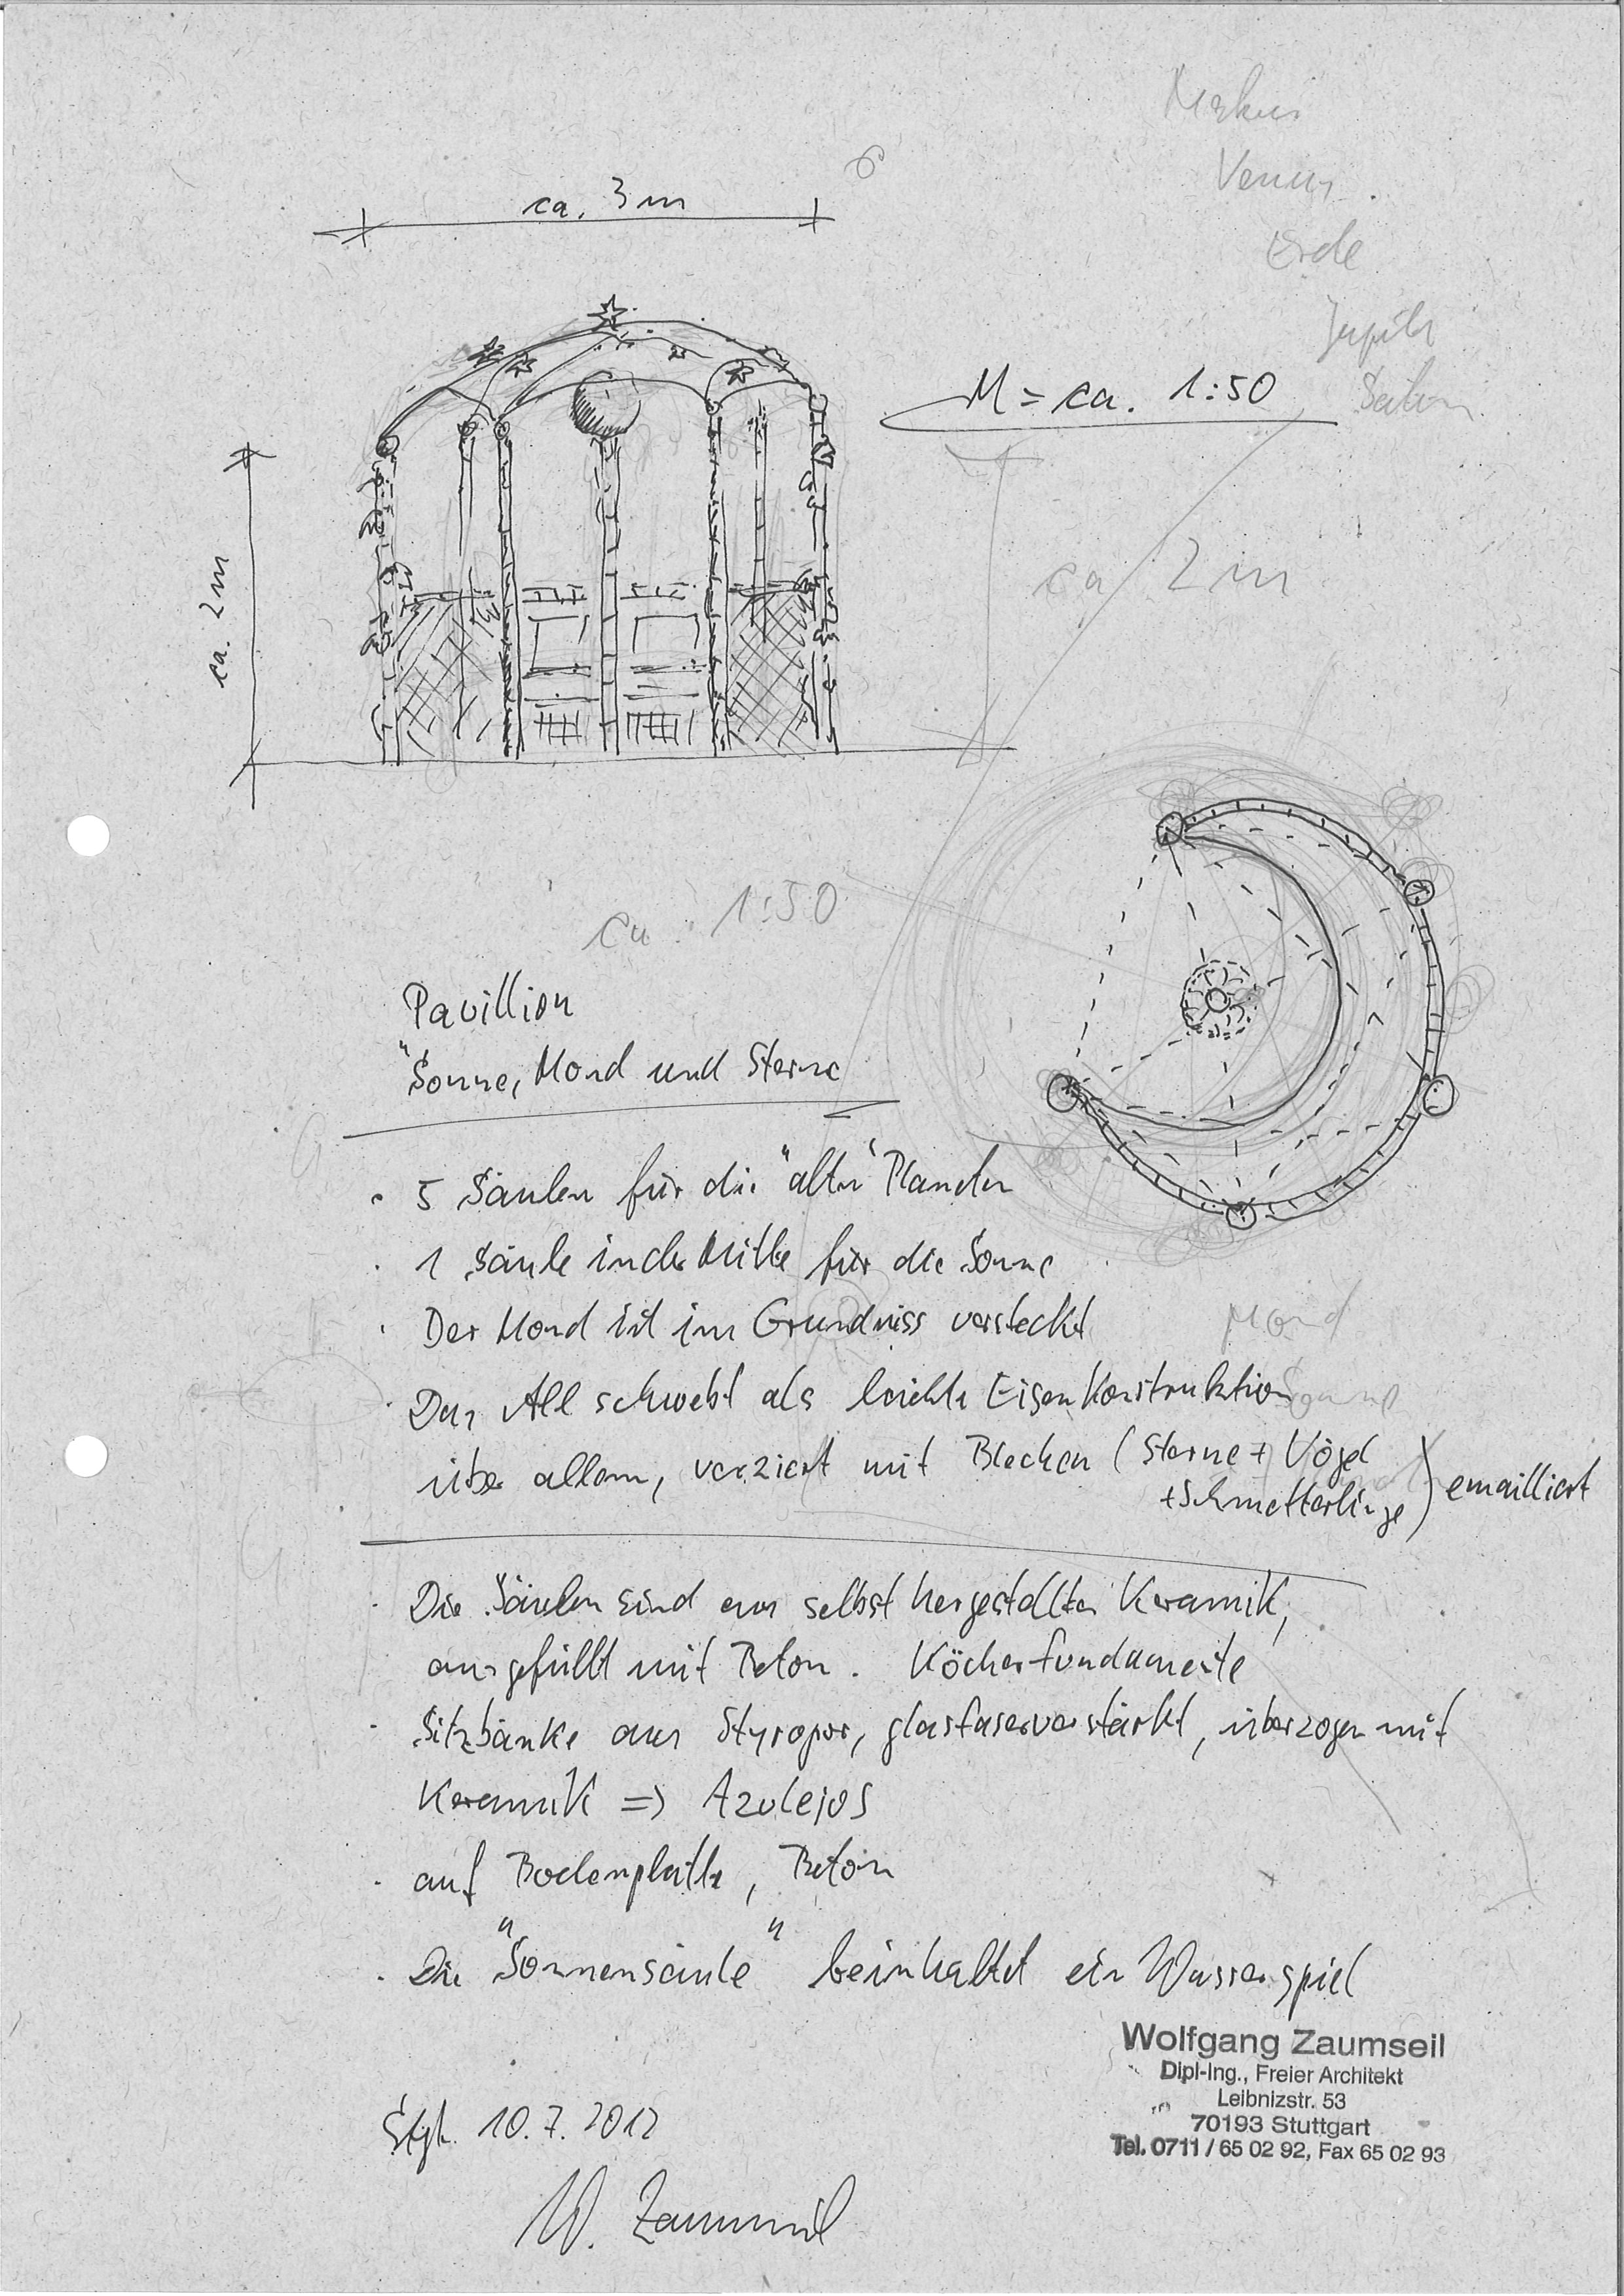 Merkur
Venus
Erde
Jupiter
Saturn
ca. 3 m
M = ca. 1:50
ca. 2 m
ca 2 m
ca. 1:50
Pavillion
"Sonne, Mond und Sterne
· 5 Säulen für die "alten" Planeten
· 1 Säule in der Mitte für die Sonne
· Der Mond ist im Grundriss versteckt
Mond
· Das All schwebt als leichte Eisenkonstruktion
Sonne
über allem, verziert mit Blechen (Sterne + Vögel
+ Schmetterlinge) emailliert
· Die Säulen sind aus selbst hergestellter Keramik,
ausgefüllt mit Beton. Köcherfundamente
· Sitzbänke aus Styropor, glasfaserverstärkt, überzogen mit
Keramik => Azulejos
· auf Bodenplatte, Beton
· Die "Sonnensäule" beinhaltet ein Wasserspiel
Wolfgang Zaumseil
Dipl-Ing., Freier Architekt
Leibnizstr. 53
70193 Stuttgart
Tel. 0711 / 65 02 92, Fax 65 02 93
Stgt. 10.7.2012
W. Zaumseil